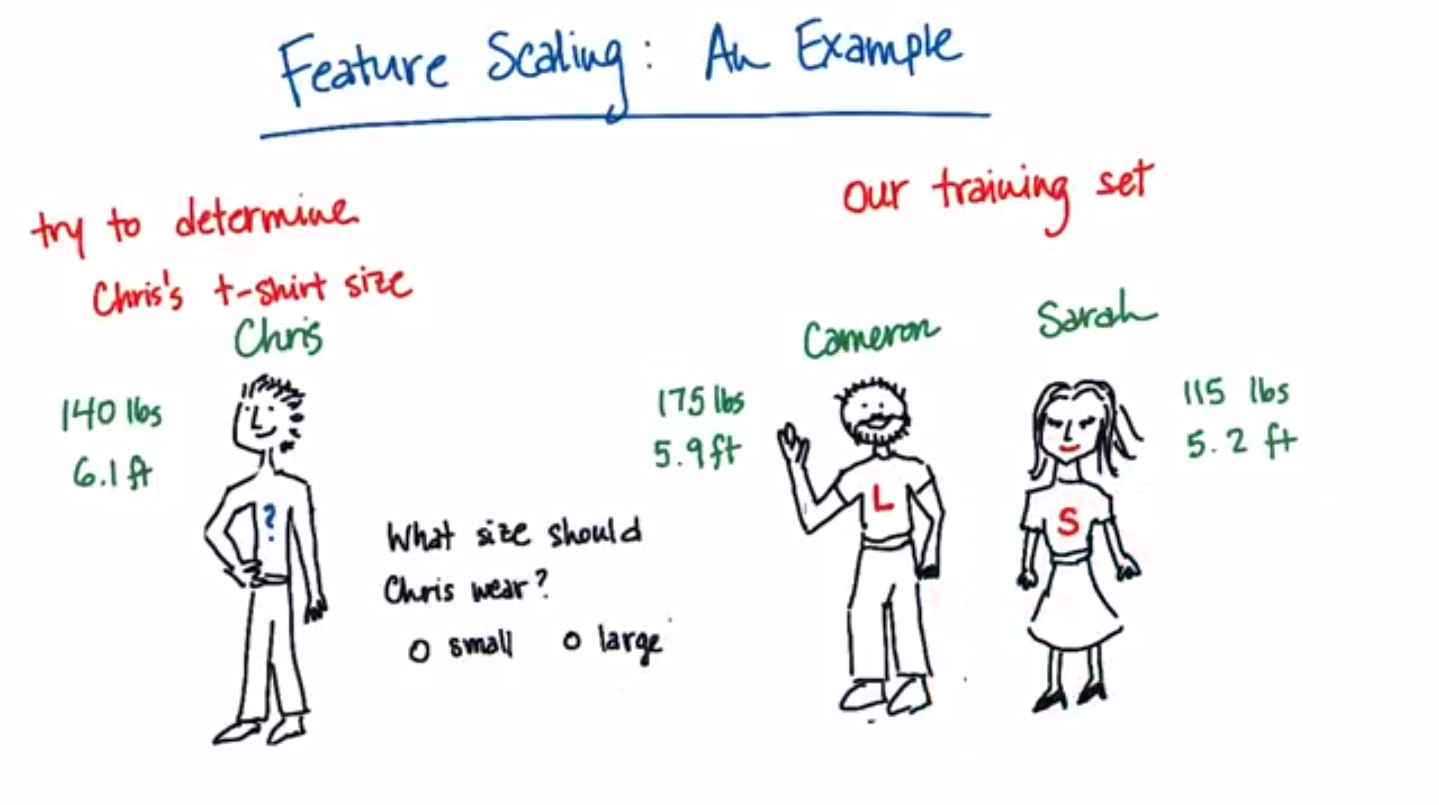 Feature Scaling: An Example
try to determine
Chris's t-shirt size
Chris
140 lbs
6.1 ft
?
What size should
Chris wear?
O small O large
our training set
Cameron
175 lbs
5.9 ft
L
Sarah
115 lbs
5.2 ft
S